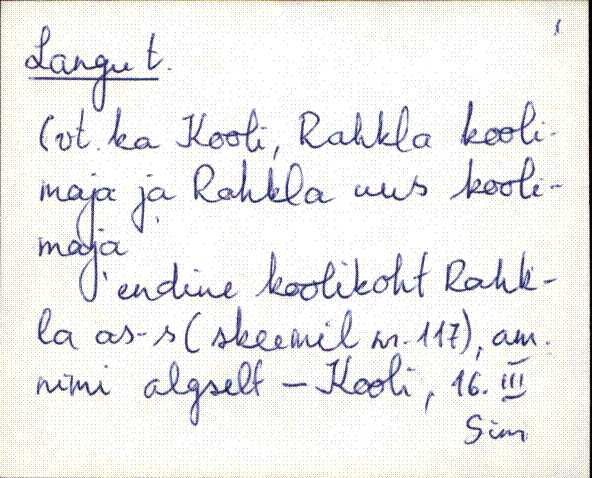 Langu t.
(vt. ka Kooli, Rahkla kooli-
maja ja Rahkla uus kooli-
maja
endine koolikoht Rahk-
la as-s (skeemil nr. 117), am.
nimi algselt – Kooli, 16. III
Sim